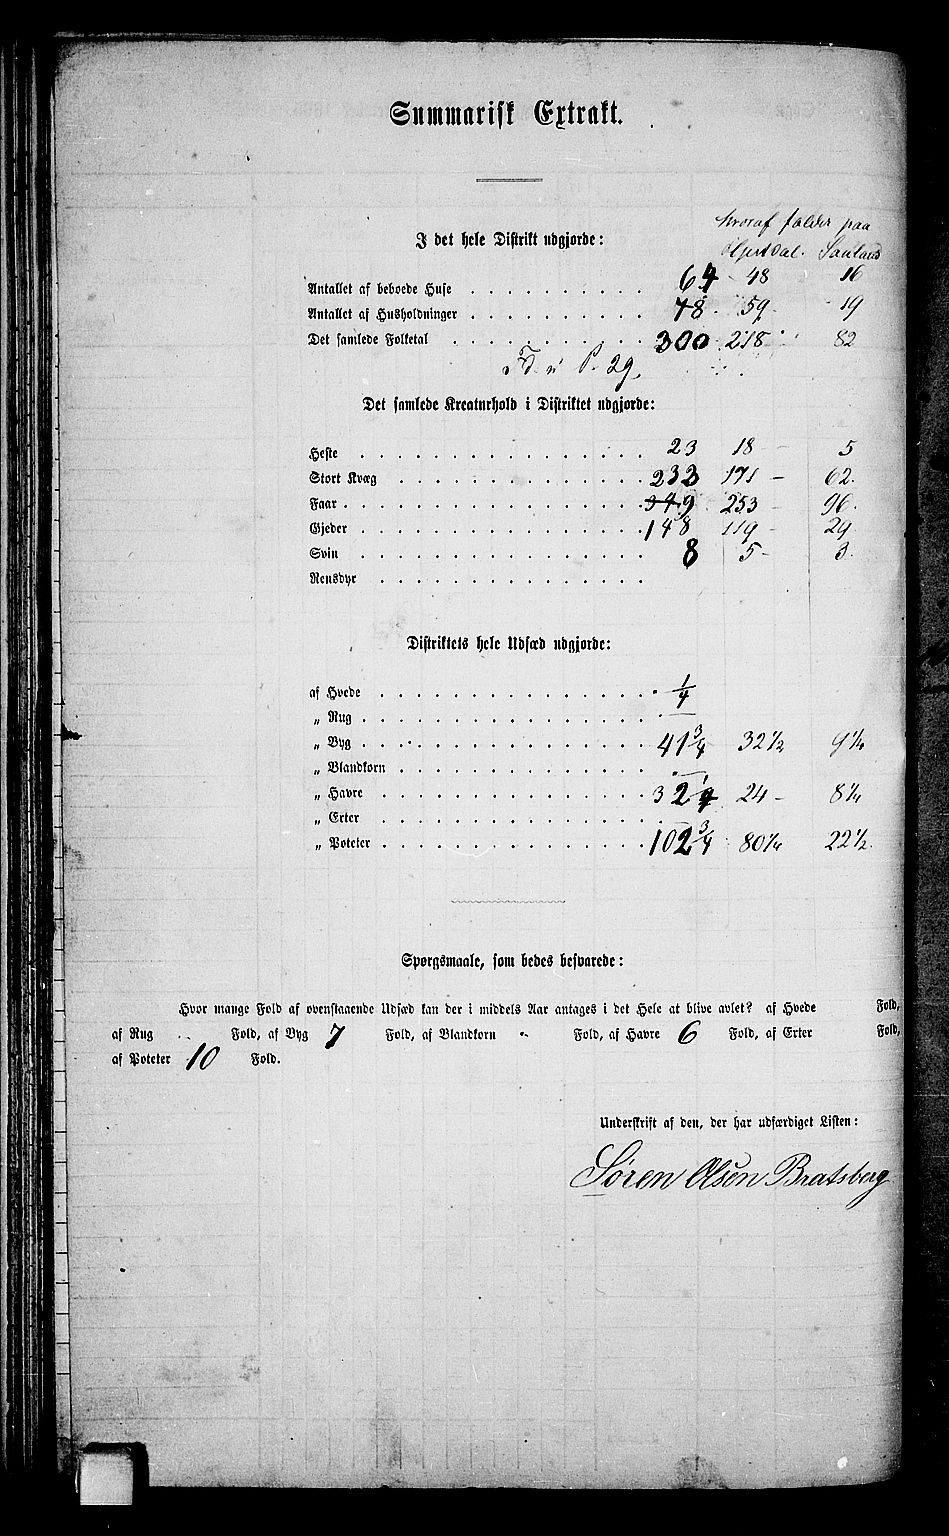 Summarisk Extrakt.
hvoraf falder paa
I det hele Distrikt udgjorde:
Hjertdal. Sauland
Antallet af beboede Huse . . . . . . . . 64 48 16
Antallet af Husholdninger . . . . . . . . 78. 59. 19
Det samlede Folketal . . . . . . . . 300 218 82
P. 29.
Det samlede Kreaturhold i Distriktet udgjorde:
Heste . . . . . . . . 23 18 - 5
Stort Kvæg . . . . . . . . 233 171 - 62.
Faar . . . . . . . . 349 253 96.
Gjeder . . . . . . . . 148 119 - 29
Svin . . . . . . . . 8 5 - 3.
Rensdyr . . . . . . . .
Distriktets hele Udsæd udgjorde:
af Hvede . . . . . . . . 1/4
„ Rug . . . . . . . . —
„ Byg . . . . . . . . 41 3/4 32 1/2 9 1/4
„ Blandkorn . . . . . . . . —
„ Havre . . . . . . . . 32 1/4 24 - 8 1/4
„ Erter . . . . . . . . —
„ Poteter . . . . . . . . 102 3/4 80 1/4 22 1/2.
Spørgsmaale, som bedes besvarede:
Hvor mange Fold af ovenstaaende Udsæd kan der i middels Aar antages i det Hele at blive avlet? af Hvede Fold,
af Rug Fold, af Byg 7 Fold, af Blandkorn " Fold, af Havre 6 Fold, af Erter Fold,
af Poteter 10 Fold.
Underskrift af den, der har udfærdiget Listen:
Søren Olsen Bratsberg